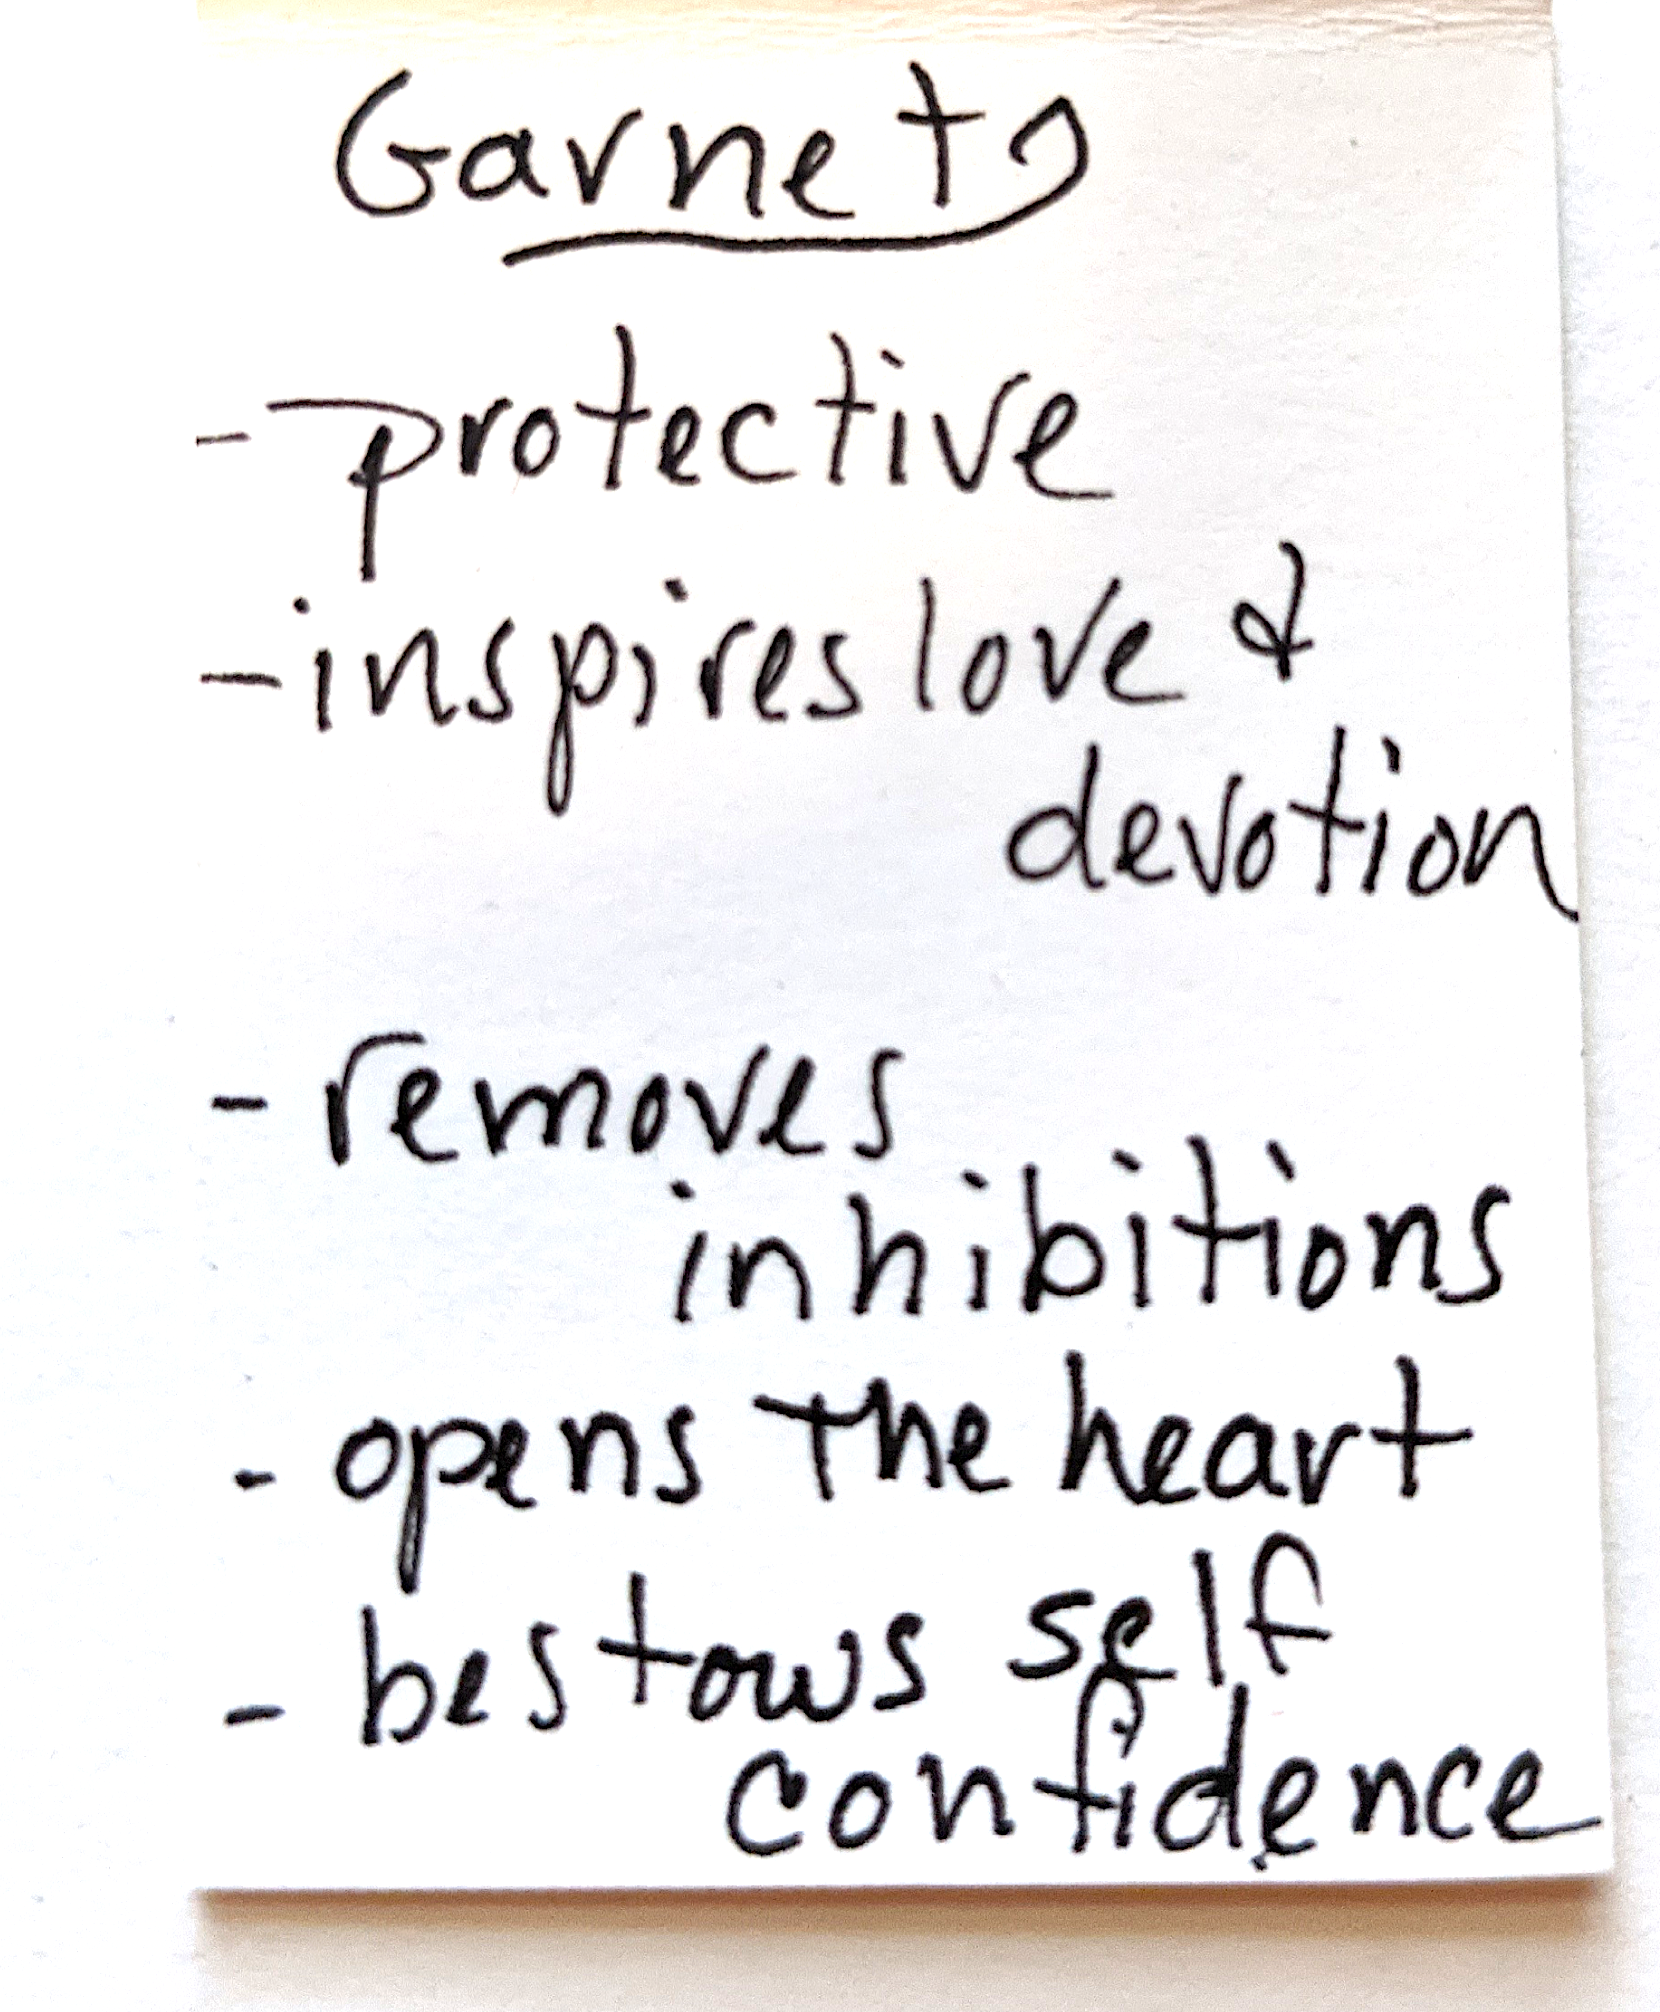 Garnet
- protective
- inspires love &
devotion
- removes
inhibitions
- opens the heart
- bestows self
confidence